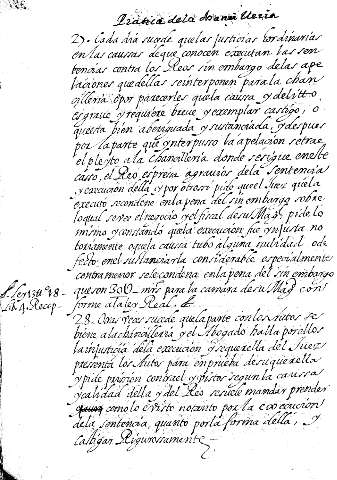 Pratica de la Chancilleria
27. Cada dia sucede que las justicias hordinarias
en las caussas de que conocen executan las sen-
tencias contra los Reos sin embargo de las ape
laciones que dellas se interponen para la chan
cilleria o por parecerles que la caussa y delitto
es grave y requiere breve y exemplar castigo, o
que esta bien averiguada y sustanciada, y despues
por la parte que ynterpusso la apelacion se trae
el pleyto a la chancilleria donde se sigue en este
casso, el Reo espresa agravios de la sentencia
y execucion della, y por otro si pide que el Juez que la
executo se condene en la pena del sin embargo sobre
lo qual se ve el negocio y el fiscal de su Magd pide lo
mismo y constando que la execucion fue ynjusta no
toriamente o que la causa tubo alguna nulidad o de
fecto en el sustanciarla considerable especialmente
contra menor se le condena en la pena del sin embargo
que son 30U mrs para la camara de su Magd con
forme a la ley Real.
28. Otras veces sucede que la parte con los autos se
biene a la chancilleria y el Abogado halla por ellos
la injusticia de la execucion y se querella del Juez
presenta los Autos para en prueba de su querella
y pide prision contra el y vistos segun la caussa
y calidad della y del Reo se suele mandar prender
como lo e visto no tanto por la execucion
de la sentencia, quanto por la forma della, y
castigar Rigurosamente